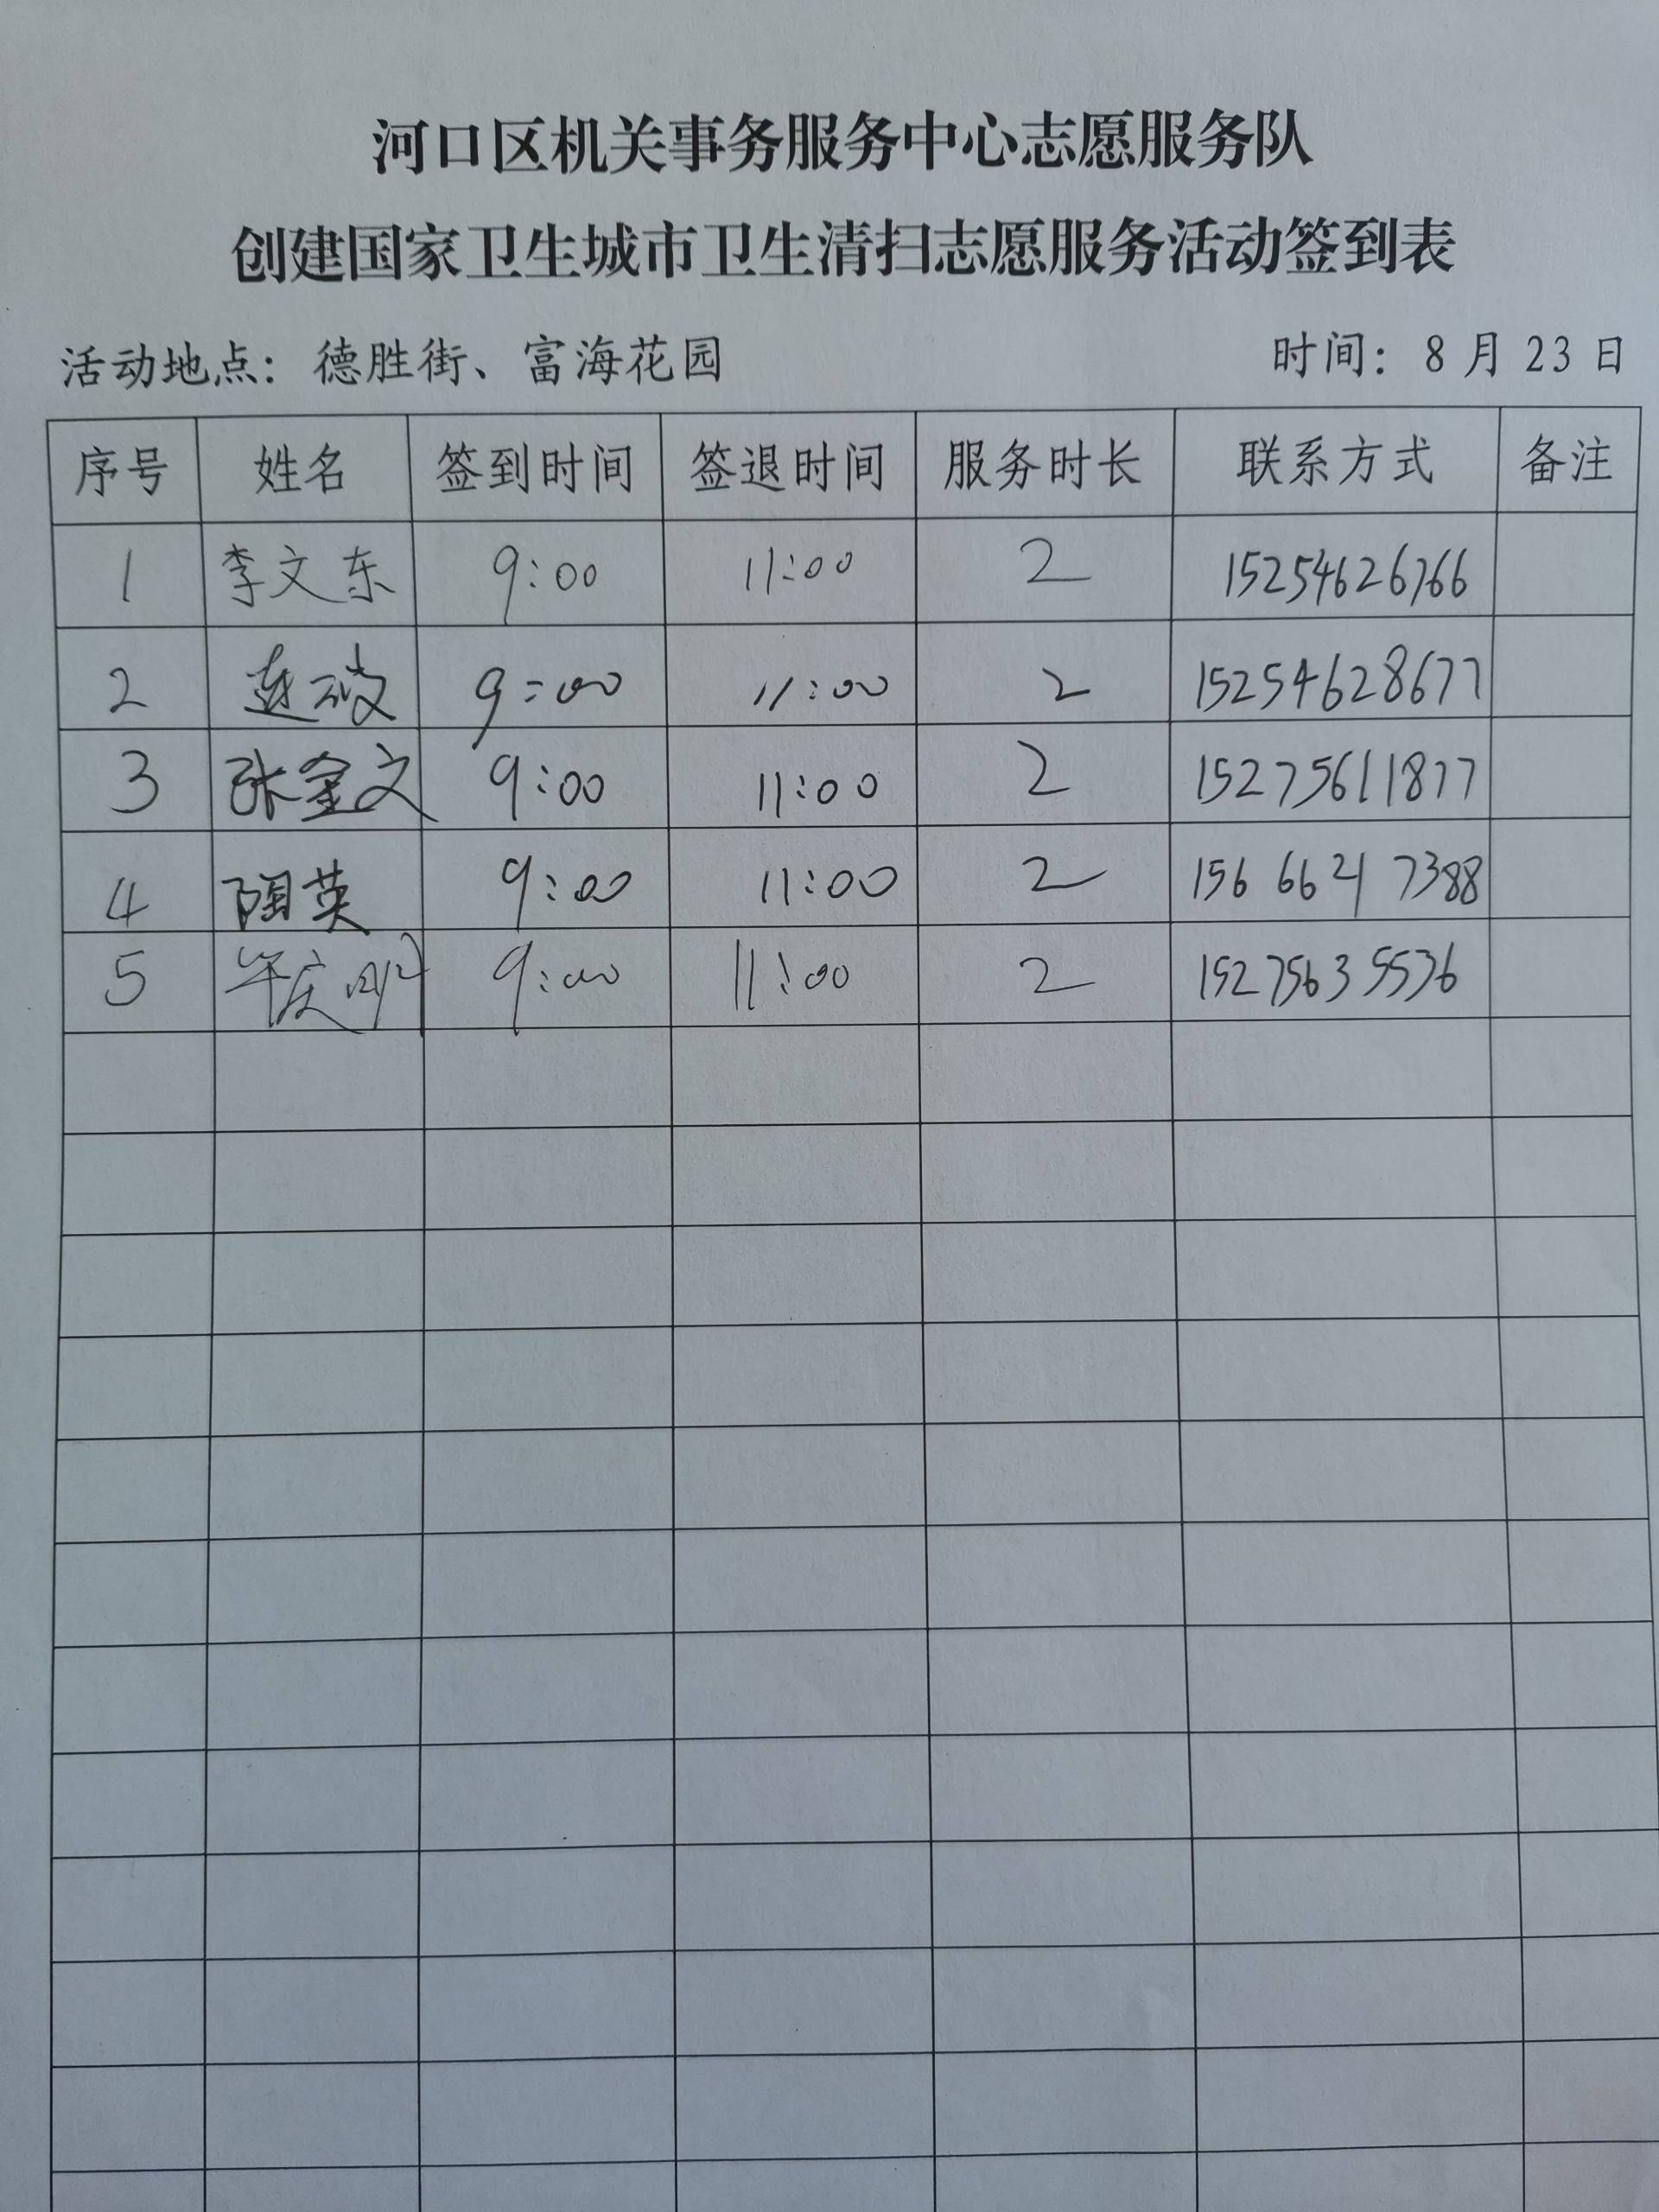 河口区机关事务服务中心志愿服务队
创建国家卫生城市卫生清扫志愿服务活动签到表
活动地点：德胜街、富海花园 时间：8月23日
序号 姓名 签到时间 签退时间 服务时长 联系方式 备注
1 李文东 9:00 11:00 2 15254626766
2 9:00 11:00 2 15254628677
3 张金文 9:00 11:00 2 15275611877
4 陶英 9:00 11:00 2 156 6621 7388
5 9:00 11:00 2 15275635536